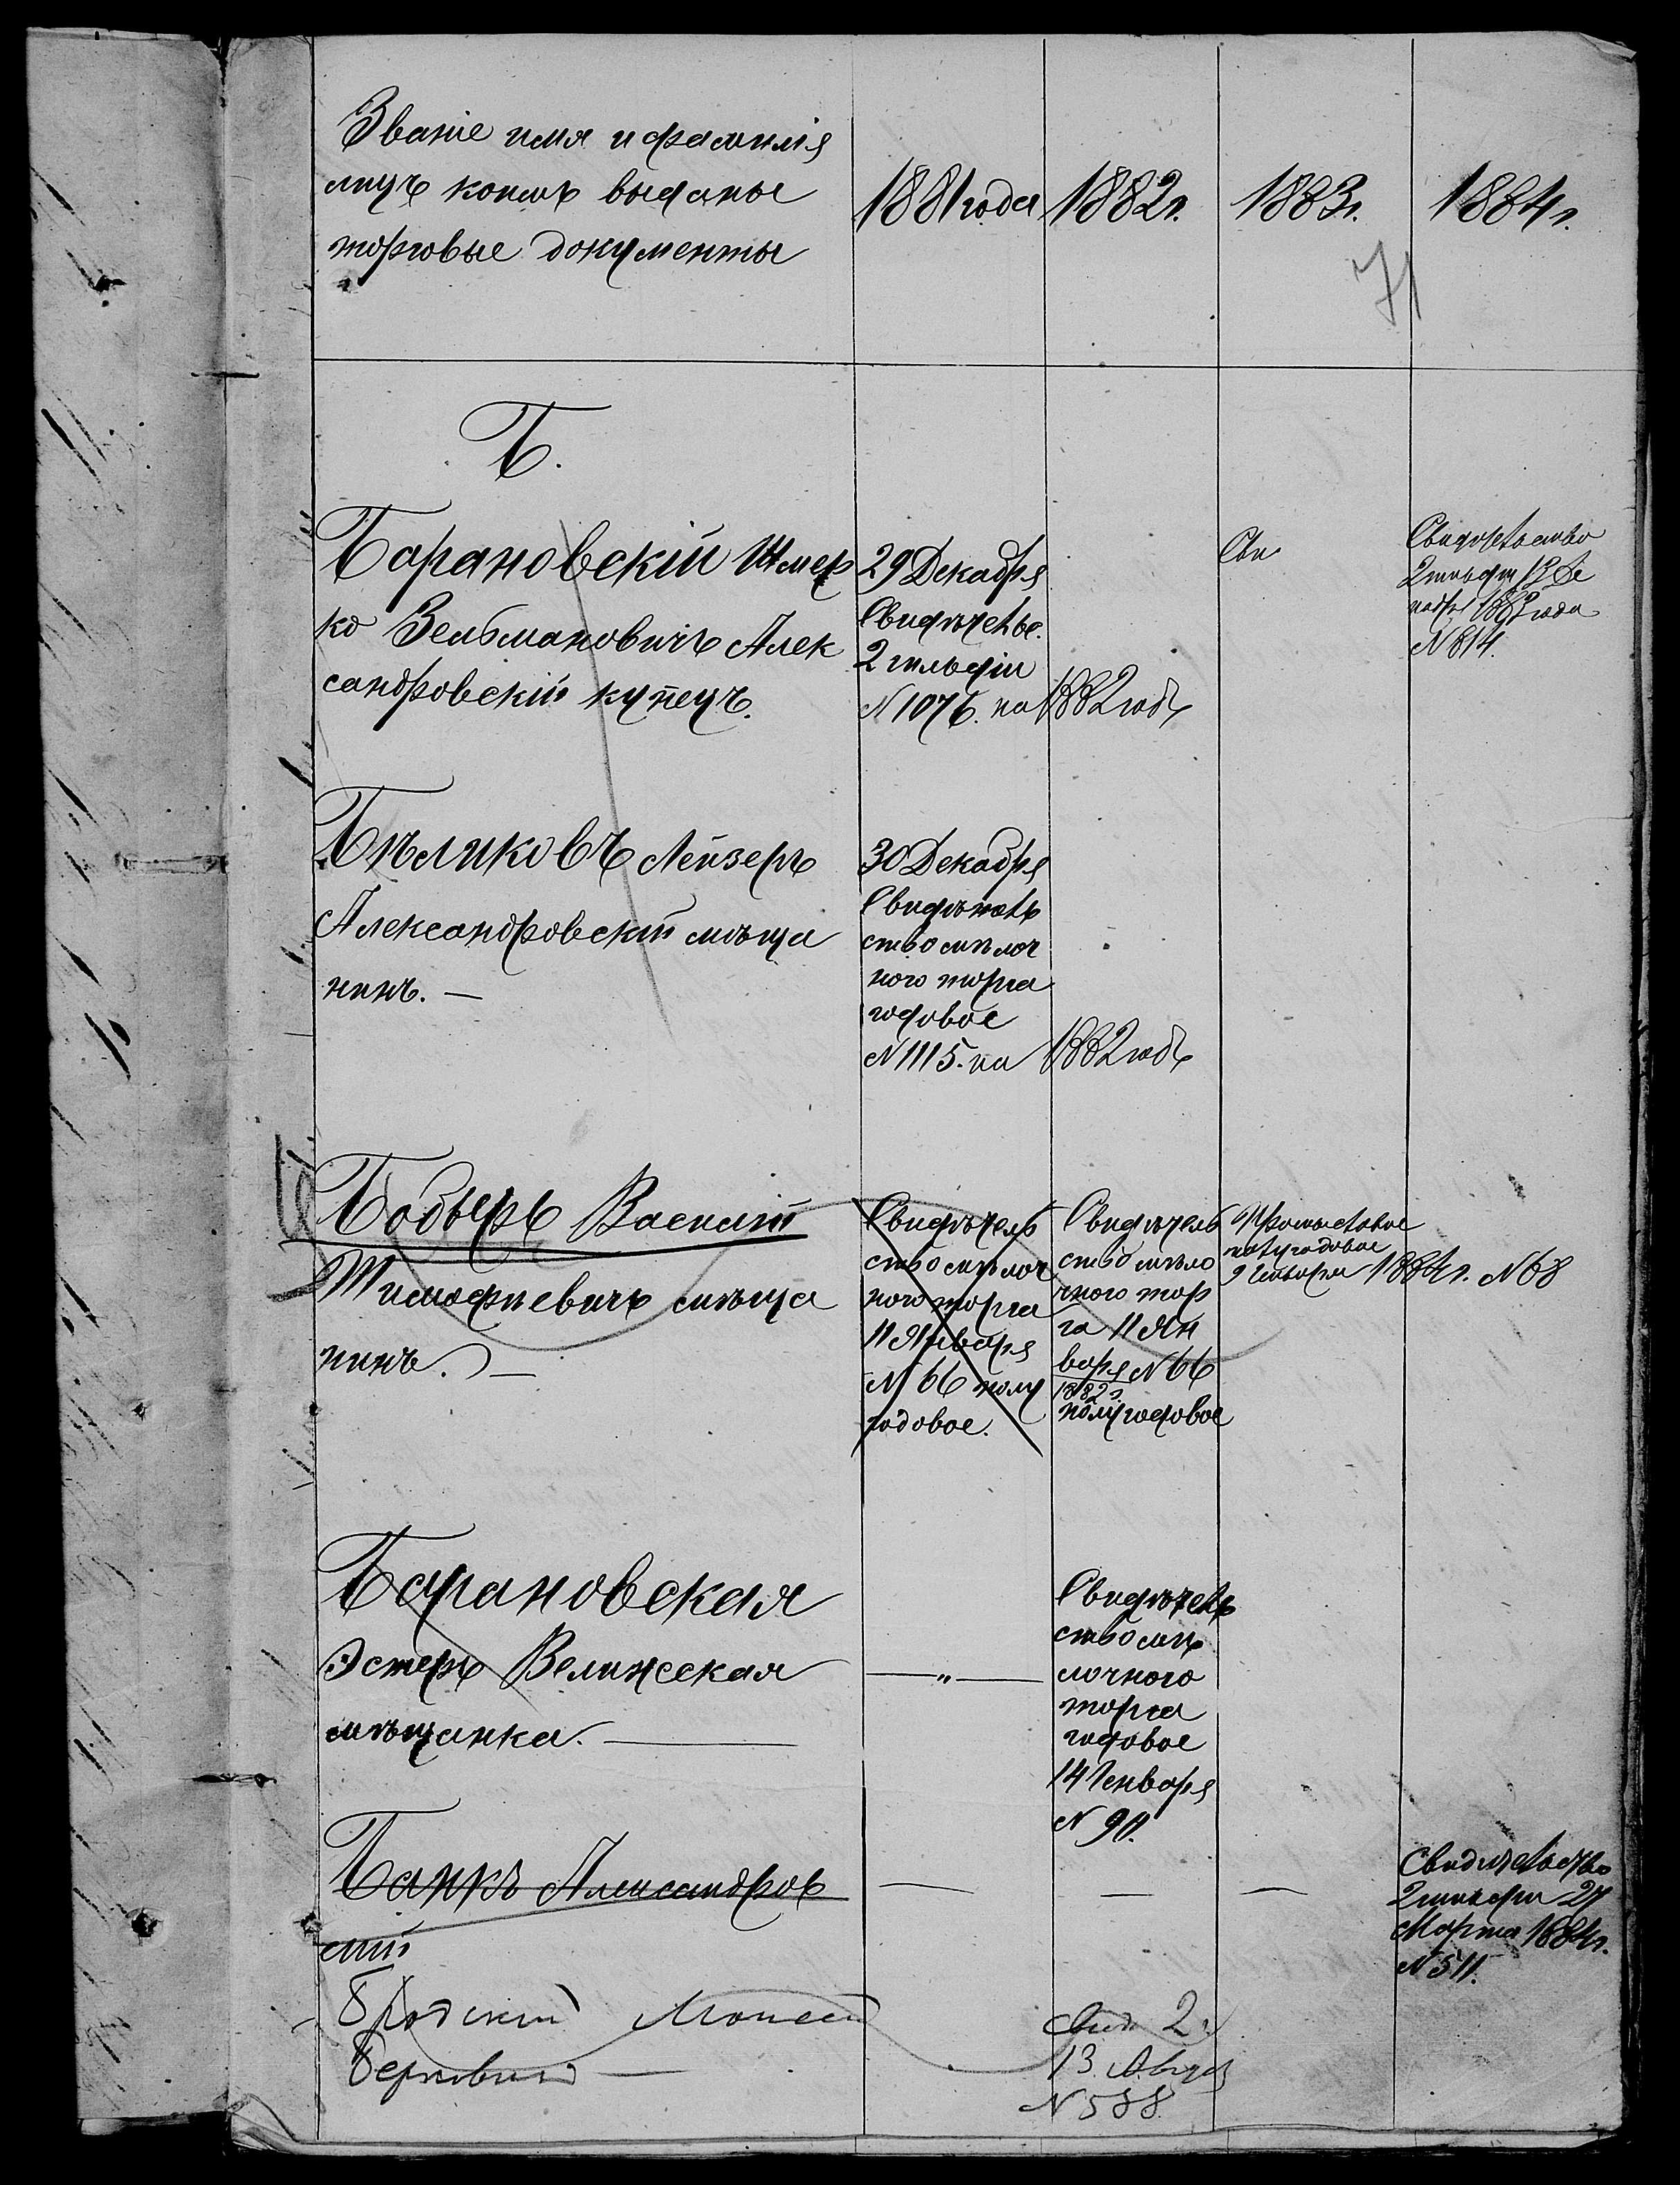 Званіе имя и фамилія
лицъ коимъ выданы
торговые документы
1881 года
1882 г.
1883 г.
1884 г.
71
Б.
Барановскій Шмер
ко Зельмановичъ Алек
сандровскій купецъ.
29 Декабря
Свидѣтельс.
2 гильдіи
N 1076. на 1882 годъ
Сви
Свидѣтельство
2 гильдіи 13 Де
кабря 1883 года
N 814.
Бѣликовъ Лейзеръ
Александровскій мѣща
нинъ. —
30 Декабря
Свидѣтель
ство мѣлоч
ного торга
годовое
N 1115. на 1882 годъ
Бодьеръ Василій
Тимофѣевичъ мѣща
нинъ. —
Свидѣтель
ство мѣлоч
ного торга
11 Января
N 66 полу
годовое.
Свидѣтель
ство мѣло
чного тор
га 11 Ян
варя N 66
1882 г.
полугодовое
Промысловое
полугодовое
9 Генваря 1884 г. N 68
Барановская
Эстеръ Велижская
мѣщанка. —
— " —
Свидѣтель
ство мѣ
лочного
торга
годовое
14 Генваря
N 90.
Банкъ Александров
скій
—
—
—
Свидѣтельство
2 гильдіи 27
Марта 1884 г.
N 511.
Бродскій Моисей
Берковичъ —
Свид. 2
13. Август
N 588.